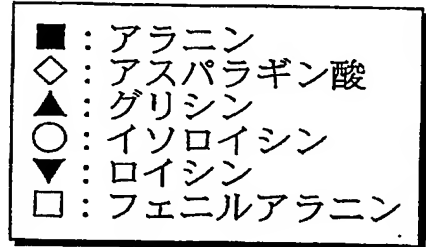 ■：アラニン
◇：アスパラギン酸
▲：グリシン
○：イソロイシン
▼：ロイシン
□：フェニルアラニン